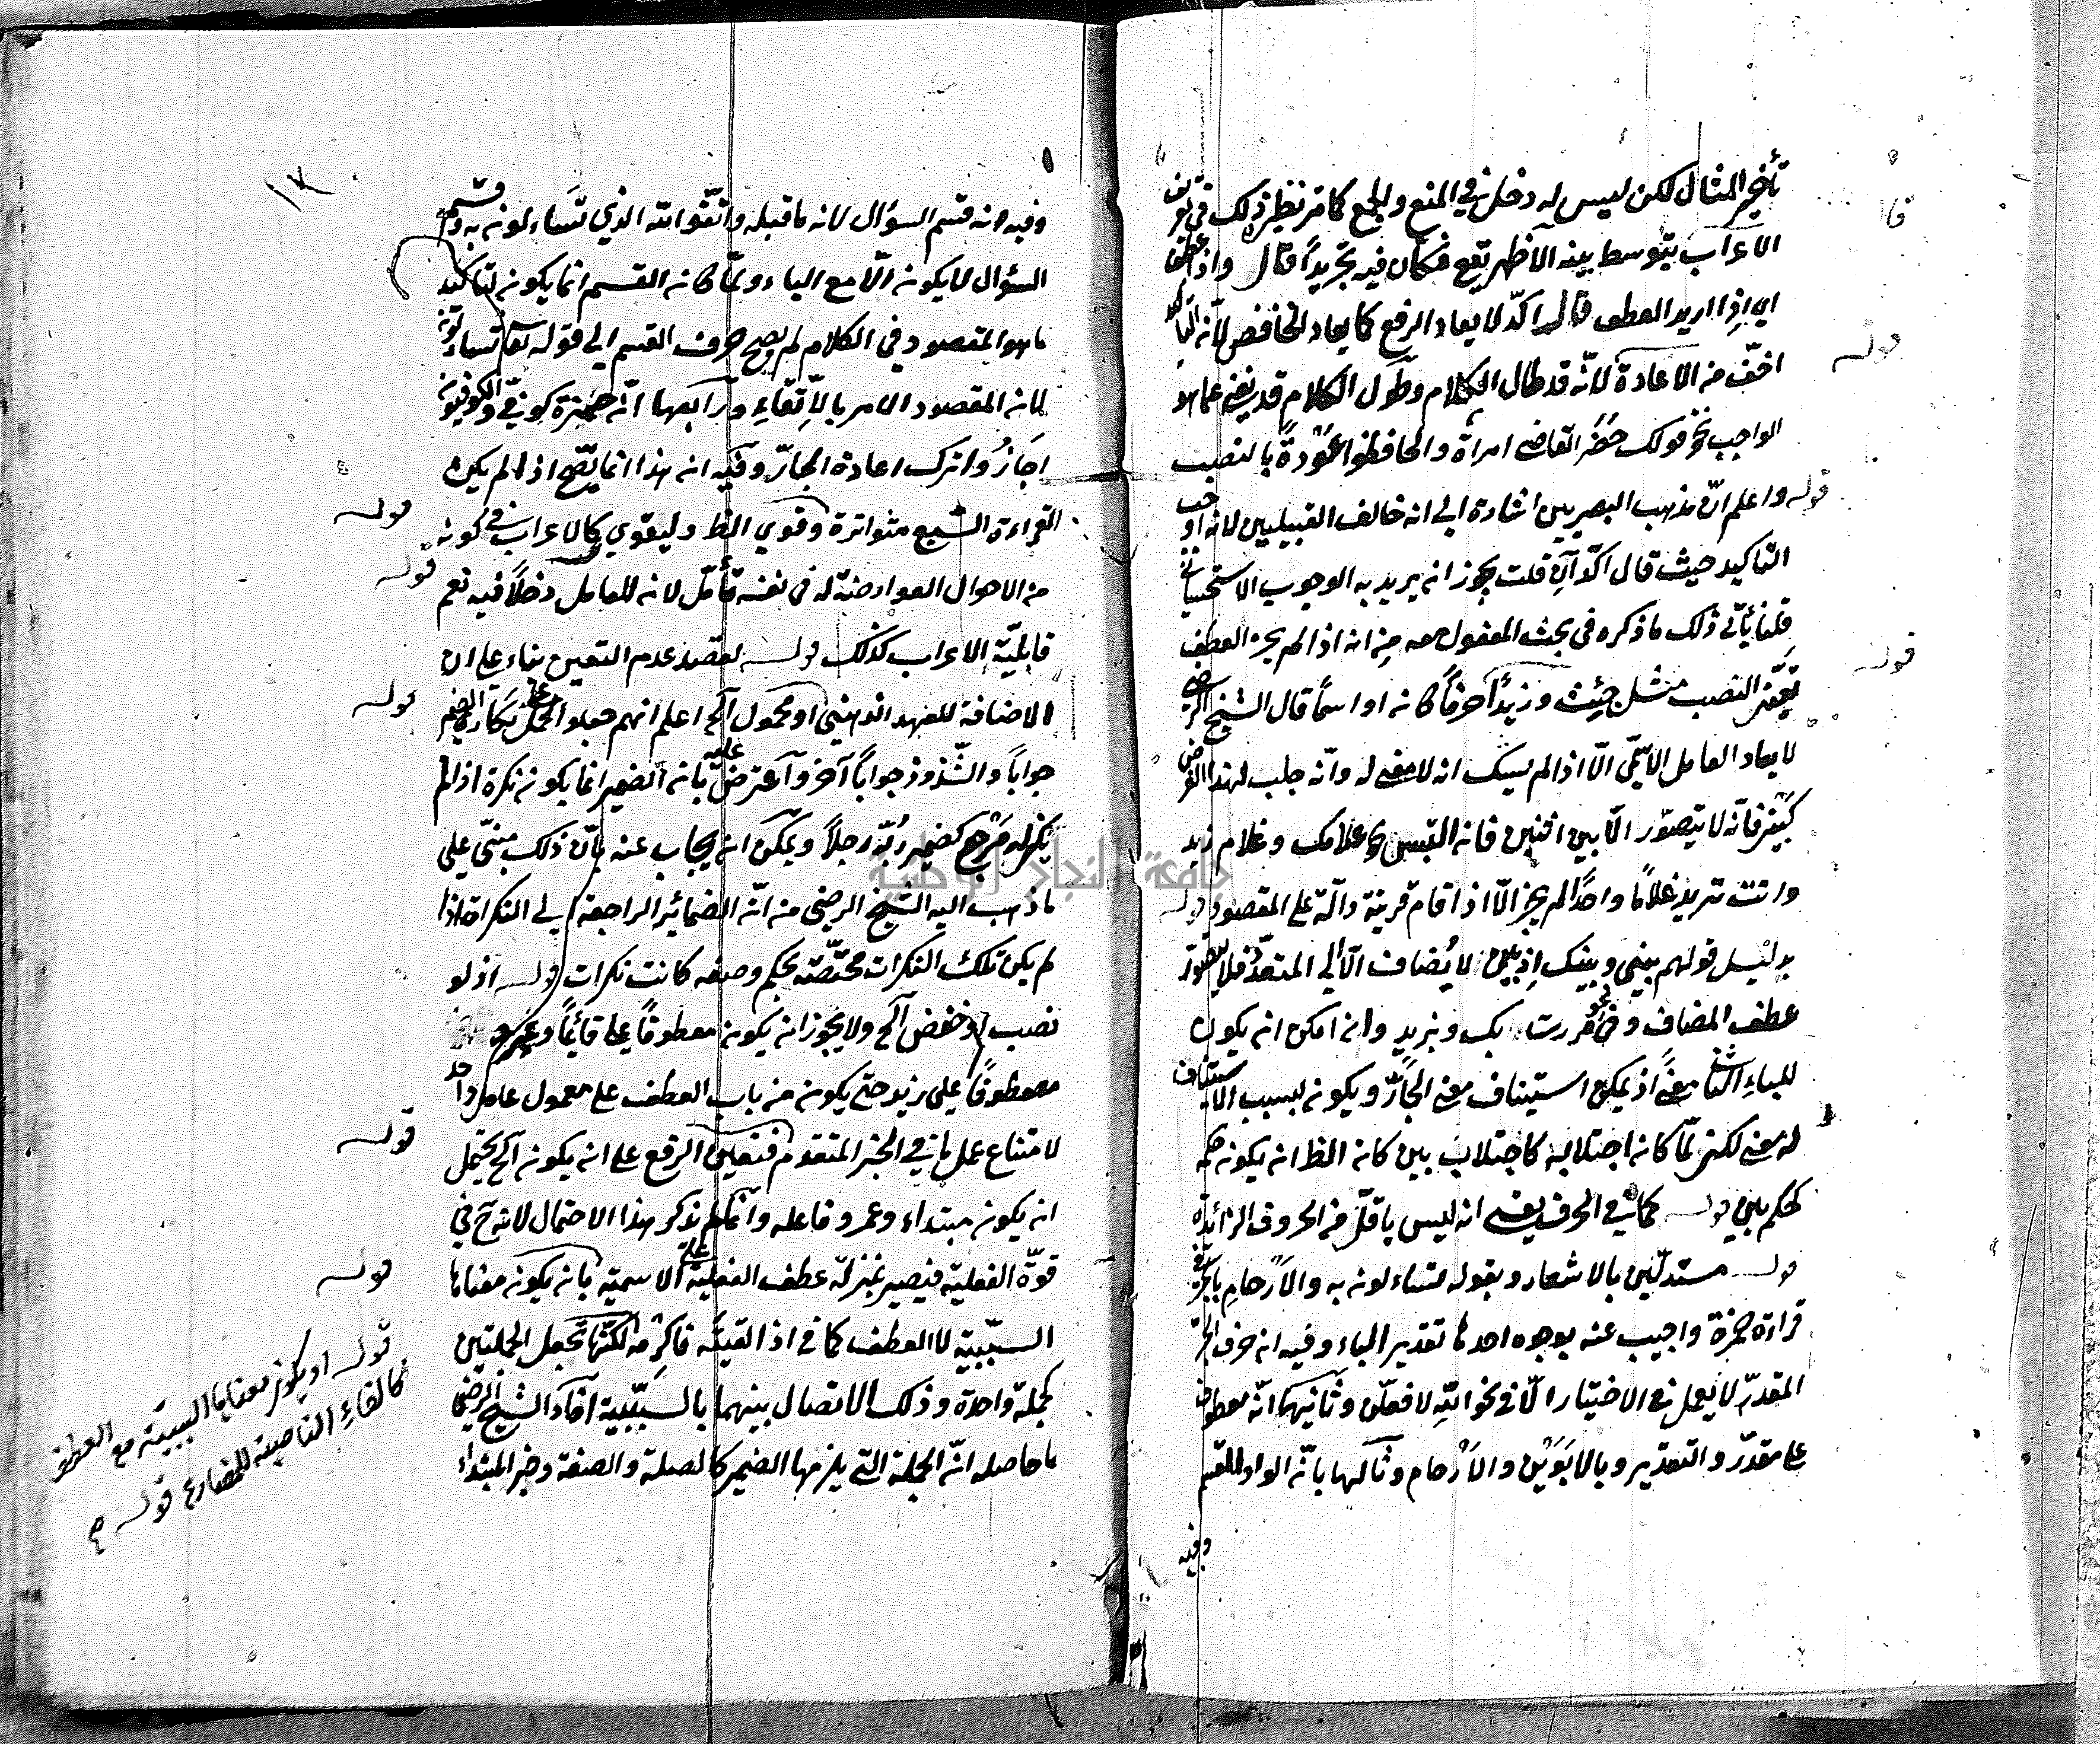 تأخير المثال لكن ليس له دخل في المنع والجمع كما مر نظير ذلك في تعريف
الاعراب بتوسط بينه الأظهر يقع فكان فيه تجريداً قال واذا عطف
اي اذا اريد العطف قال اكّد لا يعاد الرفع كما يعاد الخافض لأنه
اخفّ من الاعادة لانّه قد طال الكلام وطول الكلام قد يغني عما هو
الواجب نحو قولك حَضَر القاضي امرأة والحافظوا عَوْرةً بالنصب
قوله واعلم انّ مذهب البصريين اشارة الى انه خالف القبيلين لانه اوجب
التاكيد حيث قال اكّد آه قلت يجوز ان يريد به الوجوب الاستحساني
قلنا يأبى ذلك ما ذكره في بحث المفعول معه من انه اذا لم يجز العطف
تعيّن النصب مثل جئت وزيداً حرفاً كان او اسماً قال الشيخ الرضي
لا يعاد العامل الاسمي الّا اذا لم يشك انه لا معنى له وانّه جلب لهذا الغرض
كبين فانّه لا يتصوّر الّا بين اثنين فان التبس نحو غلامك وغلام زيد
وانت تريد غلاما واحداً لم يجز الّا اذا قام قرينة دالّة على المقصود قوله
بدليل قولهم بيني وبينك اذ بين لا يُضاف الّا الى المتعدّد فلا يتصوّر
عطف المضاف وفي نحو مررت بك وبزيد وان امكن ان يكون
للباء الثاني معنىً اذ يمكن استيناف معنى الجارّ ويكون لسبب الاستيناف
له معنى لكن لمّا كان اجتلابه كاجتلاب بين كان الظ ان يكون حكمه
كحكم بين قوله كما في الحرف يعني انه ليس باقلّ من الحروف الزائدة
قوله مستدلّين بالاشعار وبقوله تساءلون به والأرحامِ بالجرّ في
قراءة حمزة واجيب عنه بوجوه احدها تقدير الباء وفيه ان حرف الجرّ
المقدّر لا يعمل في الاختيار الّا في نحو اللّهِ لافعلنّ وثانيها انّه معطوف
على مقدّر والتقدير وبالابَوَيْن والأرْحام وثالثها بانّ الواو للقسم
وفيه
١٧
وفيه انه قسم السؤال لانه ما قبله واتّقوا الله الذي تساءلون به وقسم
السؤال لا يكون الّا مع الباء ولمّا كان القسم انما يكون لتأكيد
ما هو المقصود في الكلام لم يصح صرف القسم الى قوله تعا تساءلون
لان المقصود الامر بالإتّقاءِ ورابعها انّ حمزة كوفيّ والكوفيّون
اجازُوا ترك اعادة الجارّ وفيه ان هذا انما يصّح اذا لم يكن
القراءة السبع متواترة وقوي الظ وليقوي كالاعراب في كونه
قوله
من الاحوال العوارضة له في نفسه تأمّل لان للعامل دخلاً فيه نعم
قوله
قابليّة الاعراب كذلك قوله لقصد عدم التعين بناء على ان
الاضافة للعهد الذهني او محمول آلخ اعلم انهم جعلوا الحمل على نكارة الضمير
قوله
جواباً والشّذوذ جواباً آخر وآعترض عليه بانّ الضمير انما يكون نكرة اذا لم
يكن له مَرْجع كضمير رُبّه رجلاً ويمكن ان يجاب عنه بانّ ذلك مبنيّ على
ما ذهب اليه الشيخ الرضي من انّ الضمائر الراجعة الى النكرات اذا
لم يكن تلك النكرات مختصّة بحكم وصفه كانت نكرات قوله اذ لو
نصب او خفض آلخ ولا يجوز ان يكون معطوفاً على قائماً وعمرو
معطوفاً على زيد حتى يكون من باب العطف على معمول عامل واحد
لامتناع عمل ما في الخبر المتقدم فتعين الرفع على ان يكون آلخ يحتمل
قوله
ان يكون مبتداء وعمرو فاعله وانما لم يذكر هذا الاحتمال لانه ح في
قوّة الفعليّة فيصير بمنزلة عطف الفعليّة على الاسميّة بان يكون معناها
قوله
السبّبية لا العطف كما في اذا لقيته فاكرمه لكنّها تجعل الجملتين
كجملة واحدة وذلك الاتصال بينهما بالسببّية افاد الشيخ الرضي
ما حاصله انّ الجملة التي يلزمها الضمير كالصلة والصفة وخبر المبتداء
قوله او يكون معناها السببيّة مع العطف
كالفاءِ الناصبة للمضارع قوله